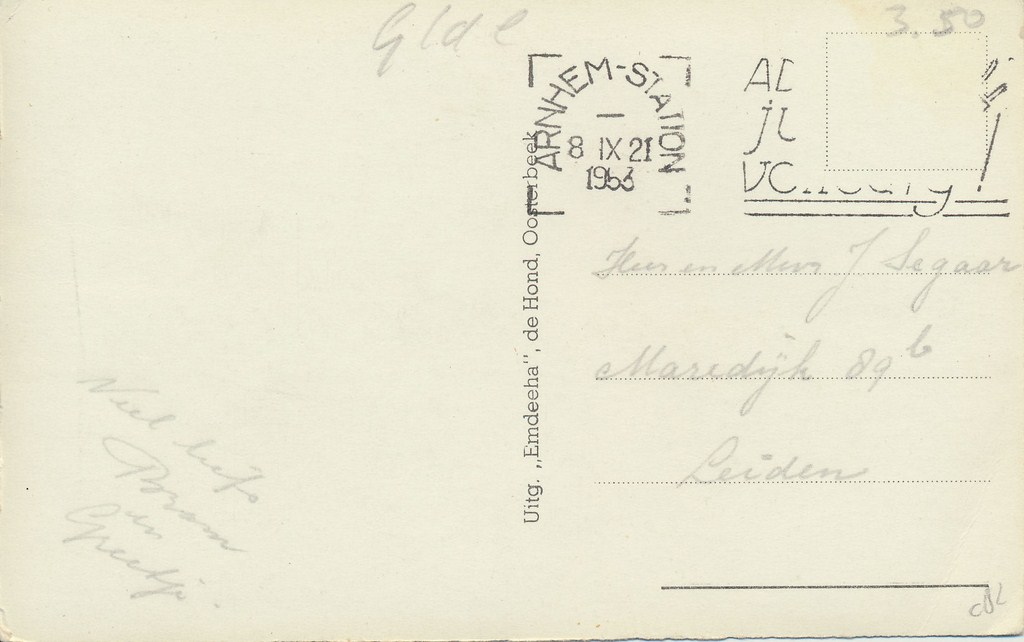 Glde
3.50
ARNHEM-STATION
8 IX 21
1953
Uitg. „Emdeeha", de Hond, Oosterbeek
Heer en Mevr J Segaar
Maredijk 89b
Leiden
Veel liefs
Bram
en
Greetje.